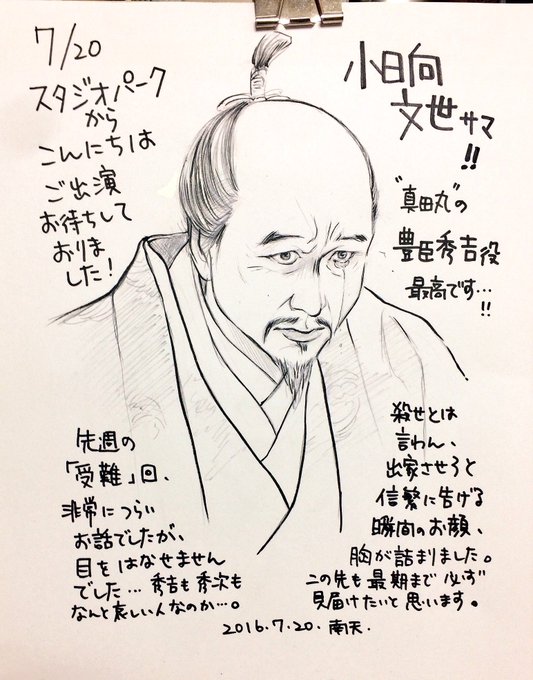 7/20
スタジオパーク
から
こんにちは
ご出演
お待ちして
おりま
した!
小日向
文世サマ
!!
"真田丸"の
豊臣秀吉役
最高です…
!!
先週の
「受難」回、
非常につらい
お話でしたが、
目をはなせません
でした…秀吉も秀次も
なんと哀しい人なのか…。
殺せとは
言わん、
出家させろと
信繁に告げる
瞬間のお顔、
胸が詰まりました。
この先も最期まで必ず
見届けたいと思います。
2016.7.20.南天.